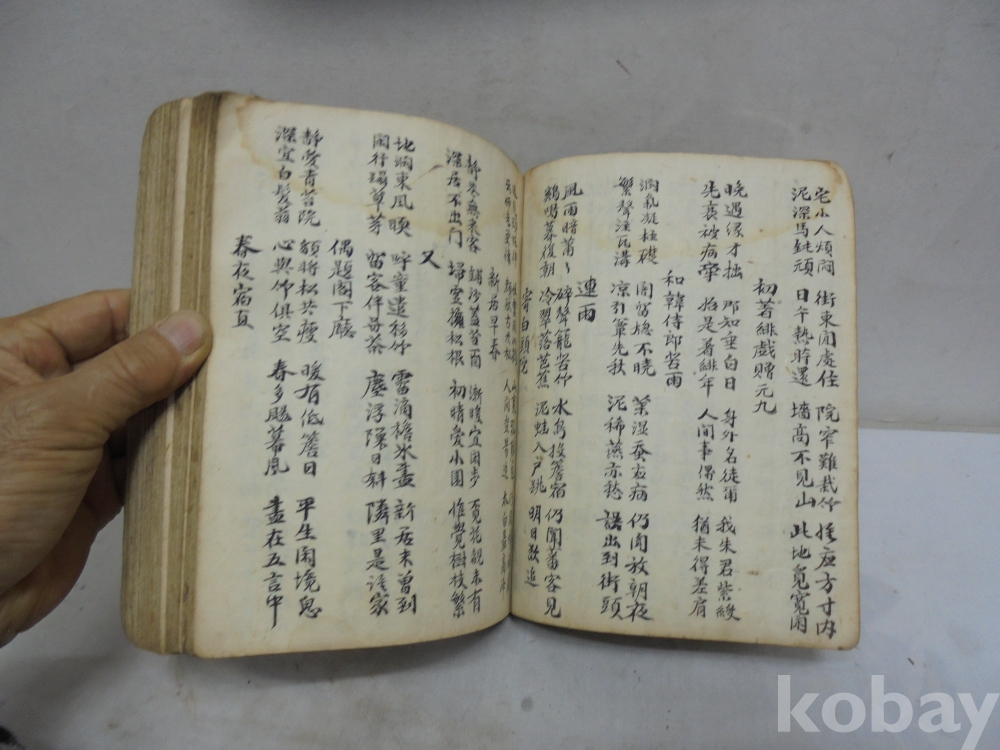 宅小人煩悶 街東閑處住 院窄難栽竹 推應方寸內
泥深馬鈍頑 日午熱時還 墻高不見山 此地覓寬閑
初著緋戲贈元九
晚遇緣才拙 那知垂白日 身外名徒爾 我朱君紫綬
先衰被病牽 始是著緋年 人間事偶然 猶未得差肩
和韓侍郎苦雨
潤氣凝柱礎 閑留牕不曉 葉湿蚕應病 仍聞放朝夜
繁聲注瓦溝 凉引簟先秋 泥稀燕亦愁 誤出到街頭
連雨
風雨暗蕭〻 碎聲籠苦竹 水鳥投簷宿 仍聞蕃客見
鷄鳴暮復朝 冷翠落芭蕉 泥蛙入戶跳 明日欲追
寄白頭陀
新居早春
靜巷無來客 鋪沙蓋苔面 漸暖宜閑步 覓花都未有
深居不出门 掃雪擁松根 初晴愛小園 惟覺樹枝繁
又
地潤東風暖 呼童遣移竹 霤滴檐氷盡 新居未曾到
閑行蹋草芽 留客伴嘗茶 塵浮隙日斜 隣里是誰家
偶題閣下廳
靜愛青苔院 貌將松共瘦 暖有低簷日 平生閑境思
深宜白髮翁 心與竹俱空 春多颺幕風 盡在五言中
春夜宿直
kobay